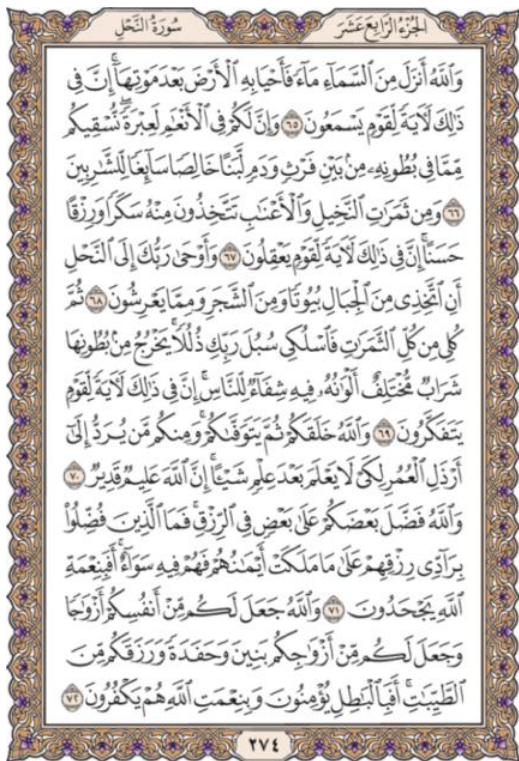 الجُزْءُ الرَّابِعَ عَشَرَ سُورَةُ النَّحْلِ
وَٱللَّهُ أَنزَلَ مِنَ ٱلسَّمَآءِ مَآءً فَأَحْيَا بِهِ ٱلْأَرْضَ بَعْدَ مَوْتِهَآ ۚ إِنَّ فِى
ذَٰلِكَ لَءَايَةً لِّقَوْمٍ يَسْمَعُونَ ٦٥ وَإِنَّ لَكُمْ فِى ٱلْأَنْعَٰمِ لَعِبْرَةً ۖ نُّسْقِيكُم
مِّمَّا فِى بُطُونِهِۦ مِنۢ بَيْنِ فَرْثٍ وَدَمٍ لَّبَنًا خَالِصًا سَآئِغًا لِّلشَّٰرِبِينَ
٦٦ وَمِن ثَمَرَٰتِ ٱلنَّخِيلِ وَٱلْأَعْنَٰبِ تَتَّخِذُونَ مِنْهُ سَكَرًا وَرِزْقًا
حَسَنًا ۗ إِنَّ فِى ذَٰلِكَ لَءَايَةً لِّقَوْمٍ يَعْقِلُونَ ٦٧ وَأَوْحَىٰ رَبُّكَ إِلَى ٱلنَّحْلِ
أَنِ ٱتَّخِذِى مِنَ ٱلْجِبَالِ بُيُوتًا وَمِنَ ٱلشَّجَرِ وَمِمَّا يَعْرِشُونَ ٦٨ ثُمَّ
كُلِى مِن كُلِّ ٱلثَّمَرَٰتِ فَٱسْلُكِى سُبُلَ رَبِّكِ ذُلُلًا ۚ يَخْرُجُ مِنۢ بُطُونِهَا
شَرَابٌ مُّخْتَلِفٌ أَلْوَٰنُهُۥ فِيهِ شِفَآءٌ لِّلنَّاسِ ۗ إِنَّ فِى ذَٰلِكَ لَءَايَةً لِّقَوْمٍ
يَتَفَكَّرُونَ ٦٩ وَٱللَّهُ خَلَقَكُمْ ثُمَّ يَتَوَفَّىٰكُمْ ۚ وَمِنكُم مَّن يُرَدُّ إِلَىٰٓ
أَرْذَلِ ٱلْعُمُرِ لِكَىْ لَا يَعْلَمَ بَعْدَ عِلْمٍ شَيْـًٔا ۚ إِنَّ ٱللَّهَ عَلِيمٌ قَدِيرٌ ٧٠
وَٱللَّهُ فَضَّلَ بَعْضَكُمْ عَلَىٰ بَعْضٍ فِى ٱلرِّزْقِ ۚ فَمَا ٱلَّذِينَ فُضِّلُوا۟
بِرَآدِّى رِزْقِهِمْ عَلَىٰ مَا مَلَكَتْ أَيْمَٰنُهُمْ فَهُمْ فِيهِ سَوَآءٌ ۚ أَفَبِنِعْمَةِ
ٱللَّهِ يَجْحَدُونَ ٧١ وَٱللَّهُ جَعَلَ لَكُم مِّنْ أَنفُسِكُمْ أَزْوَٰجًا
وَجَعَلَ لَكُم مِّنْ أَزْوَٰجِكُم بَنِينَ وَحَفَدَةً وَرَزَقَكُم مِّنَ
ٱلطَّيِّبَٰتِ ۚ أَفَبِٱلْبَٰطِلِ يُؤْمِنُونَ وَبِنِعْمَتِ ٱللَّهِ هُمْ يَكْفُرُونَ ٧٢
٢٧٤